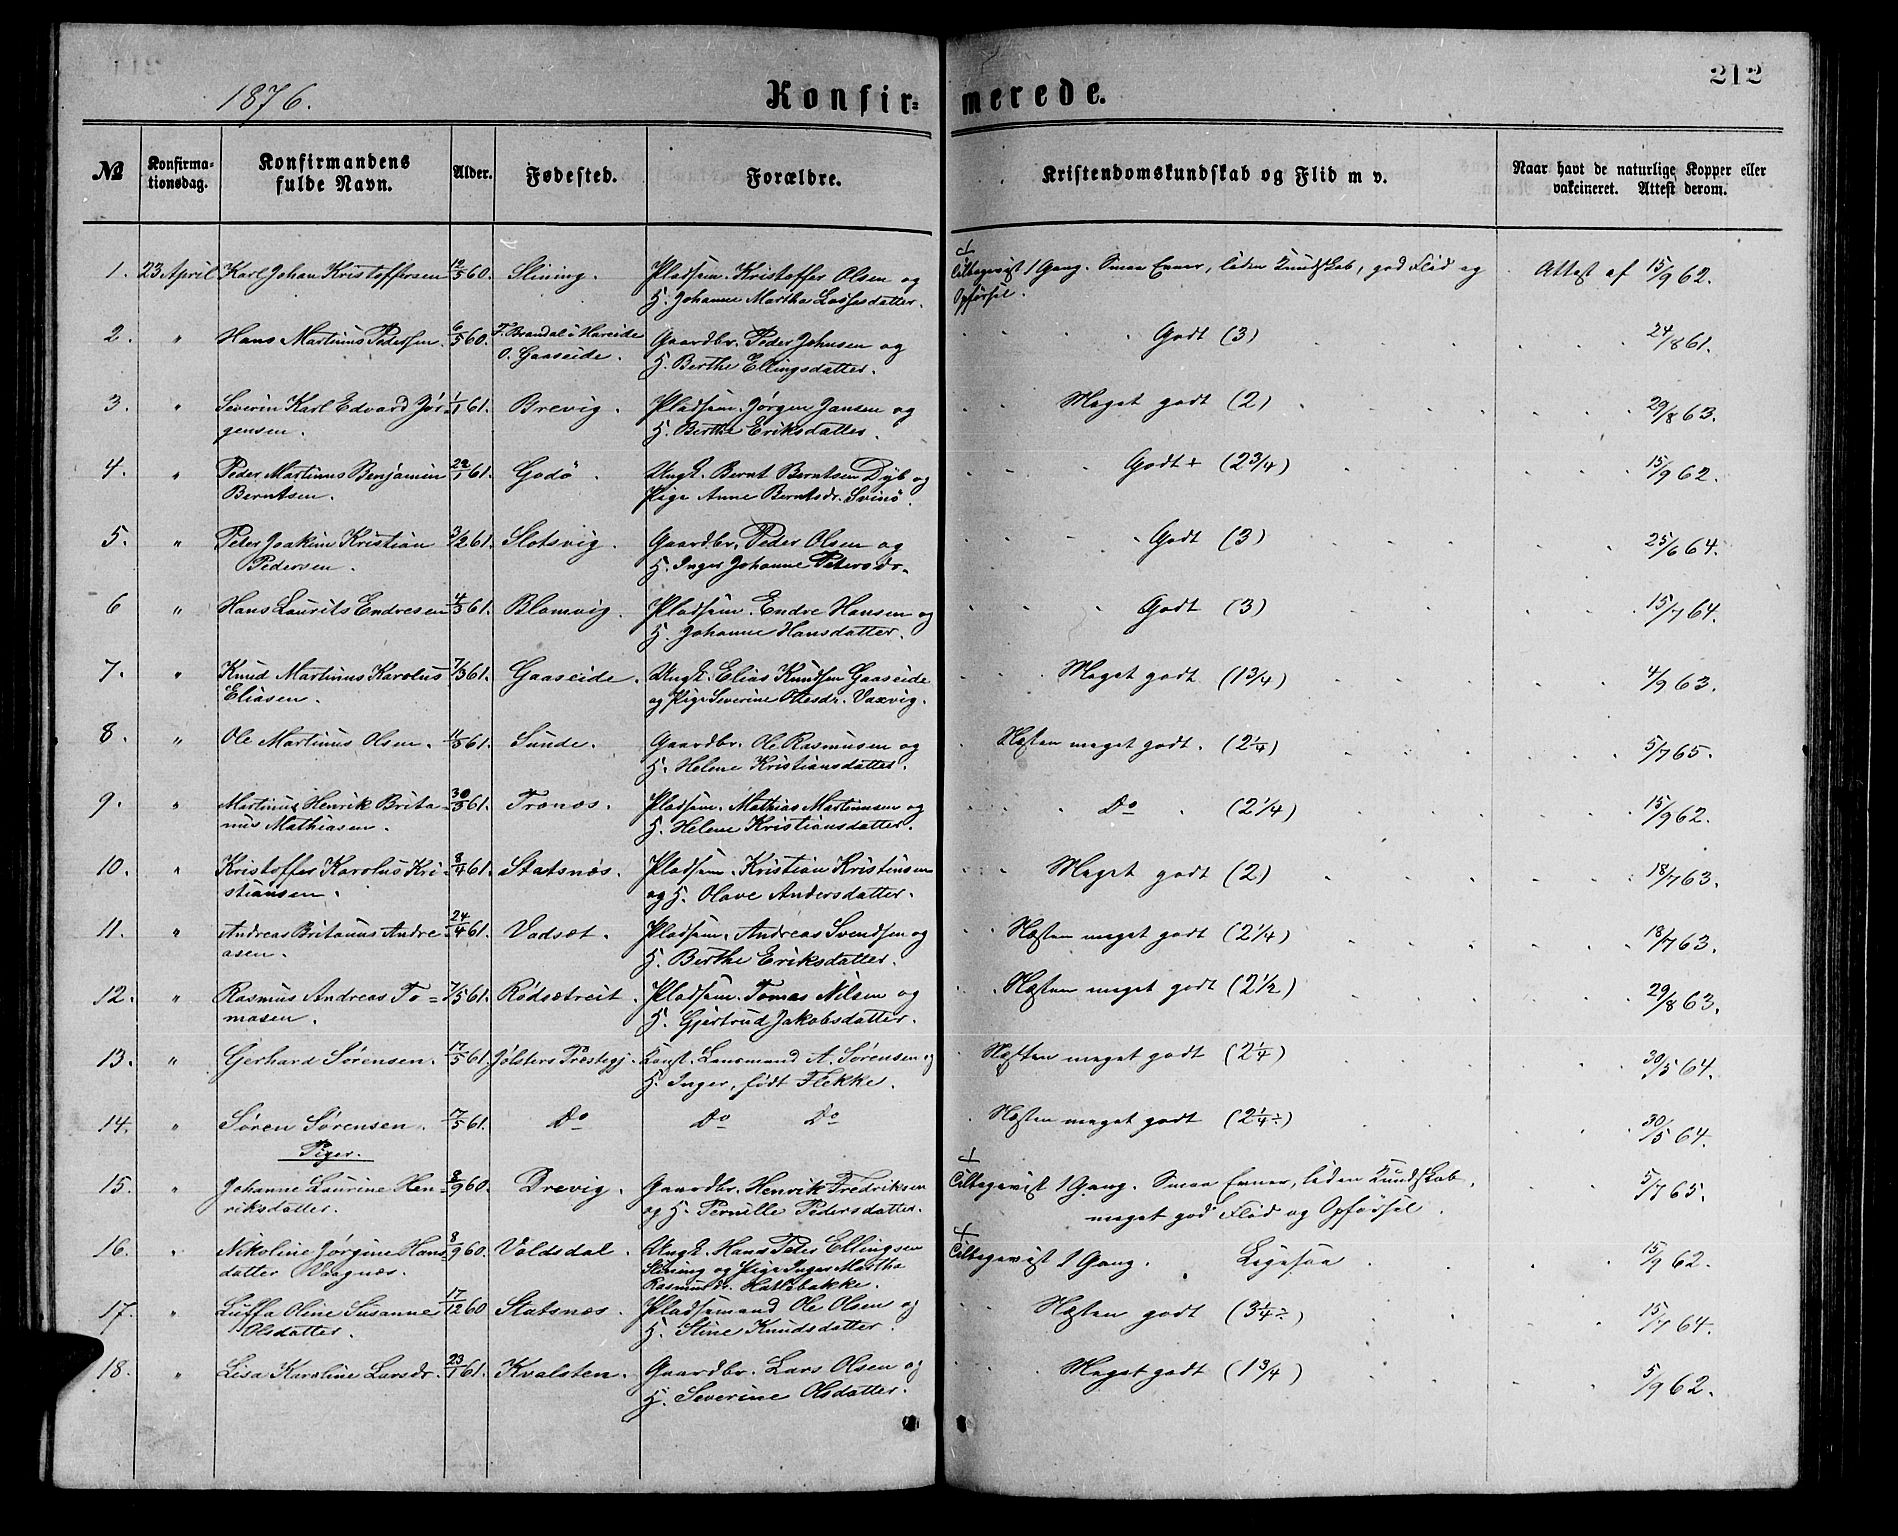 212
1876.
Konfir= merede.
№ Konfirma= Konfirmandens Alder. Fødested. Forældre. Kristendomskundskab og Flid m v. Naar havt de naturlige Kopper eller
tionsdag. fulde Navn. vakcineret. Attest derom.
1. 23 April Karl Johan Kristoffersen 12/5 60. Slining. Pladsem. Kristoffer Olsen og Tilbagevist 1 Gang. Smaa Evner, liden Kundskab, god Flid og Attest af 15/9 62.
H. Johanne Martha Lassesdatter. Opførsel.
2. " Hans Martinus Pedersen. 6/5 60. F. Brandal i Hareide Gaardbr. Peder Johnsen og Godt (3) 24/8 61.
O. Gaaseide. H. Berthe Ellingsdatter.
3. " Severin Karl Edvard Jør- 1/1 61. Brevig. Pladsem. Jørgen Jansen og Meget godt (2) 29/8 63.
gensen. H. Berthe Eriksdatter.
4. " Peder Martinus Benjamin 22/1 61. Godø. Ungk. Bernt Berntsen Dyb og Godt + (2 3/4) 15/9 62.
Berntsen. Pige Anne Berntsdr. Svinø.
5. " Peter Joakim Kristian 3/2 61. Slotsvig. Gaardbr. Peder Olsen og Godt (3) 25/6 64.
Pedersen. H. Inger Johanne Petersdr.
6 " Hans Laurits Endresen 4/3 61. Blomvig. Pladsem. Endre Hansen og Godt (3) 15/7 64.
H. Johanne Hansdatter.
7. " Knud Martinus Karolus 7/3 61. Gaaseide. Ungk. Elias Knudsen Gaaseide Meget godt (1 3/4) 4/9 63.
Eliasen. og Pige Severine Ottesdr. Vaxvig.
8. " Ole Martinus Olsen. 11/3 61. Sunde. Gaardbr. Ole Rasmusen og Næsten meget godt. (2 1/4) 5/7 65.
H. Helene Kristiansdatter.
9. " Martinus Henrik Brita- 30/3 61. Tronæs. Pladsem. Mathias Martinusen og Do (2 1/4) 15/9 62.
nus Mathiasen. H. Helene Kristiansdatter.
10. " Kristoffer Karolus Kri- 8/4 61. Statsnæs. Pladsem. Kristian Kristensen Meget godt (2) 18/7 63.
stiansen. og H. Olave Andersdatter.
11. " Andreas Britanus Andre- 24/4 61. Vadsæt. Pladsem. Andreas Svendsen og Næsten meget godt (2 1/4) 18/7 63.
asen. H. Berthe Eriksdatter.
12. " Rasmus Andreas To= 7/5 61. Rødsætreit. Pladsem. Tomas Nilsen og Næsten meget godt (2 1/2) 29/8 63.
masen. H. Gjertrud Jakobsdatter.
13. " Gerhard Sørensen. 17/5 61. Jølsters Præstegj. Konst. Lensmand A. Sørensen og Næsten meget godt (2 1/4) 30/5 64.
H. Inger, født Flekke.
14. " Søren Sørensen. 17/5 61. Do Do Do Næsten meget godt (2 1/4 ÷) 30/5 64.
Piger.
15. " Johanne Laurine Hen- 8/9 60. Drevig. Gaardbr. Henrik Fredriksen Tilbagevist 1 Gang. Smaa Evner, liden Kundskab, 5/7 65.
riksdatter. og H. Pernille Pedersdatter. meget god Flid og Opførsel.
16. " Nikoline Jørgine Hans- 8/9 60. Voldsdal. Ungk. Hans Peter Ellingsen Tilbagevist 1 Gang. Ligesaa 15/9 62.
datter Vaagnæs. Slining og Pige Inger Martha
Rasmusdr. Hatlebakke.
17. " Luffa Oline Susanne 17/12 60 Statsnæs. Pladsemand Ole Olsen og Næsten godt (3 1/4 ÷) 15/7 64.
Olsdatter. H. Stine Knudsdatter.
18. " Lisa Karoline Larsdr. 23/1 61. Kvalsten. Gaardbr. Lars Olsen og Meget godt (1 3/4) 5/9 62.
H. Severine Olsdatter.